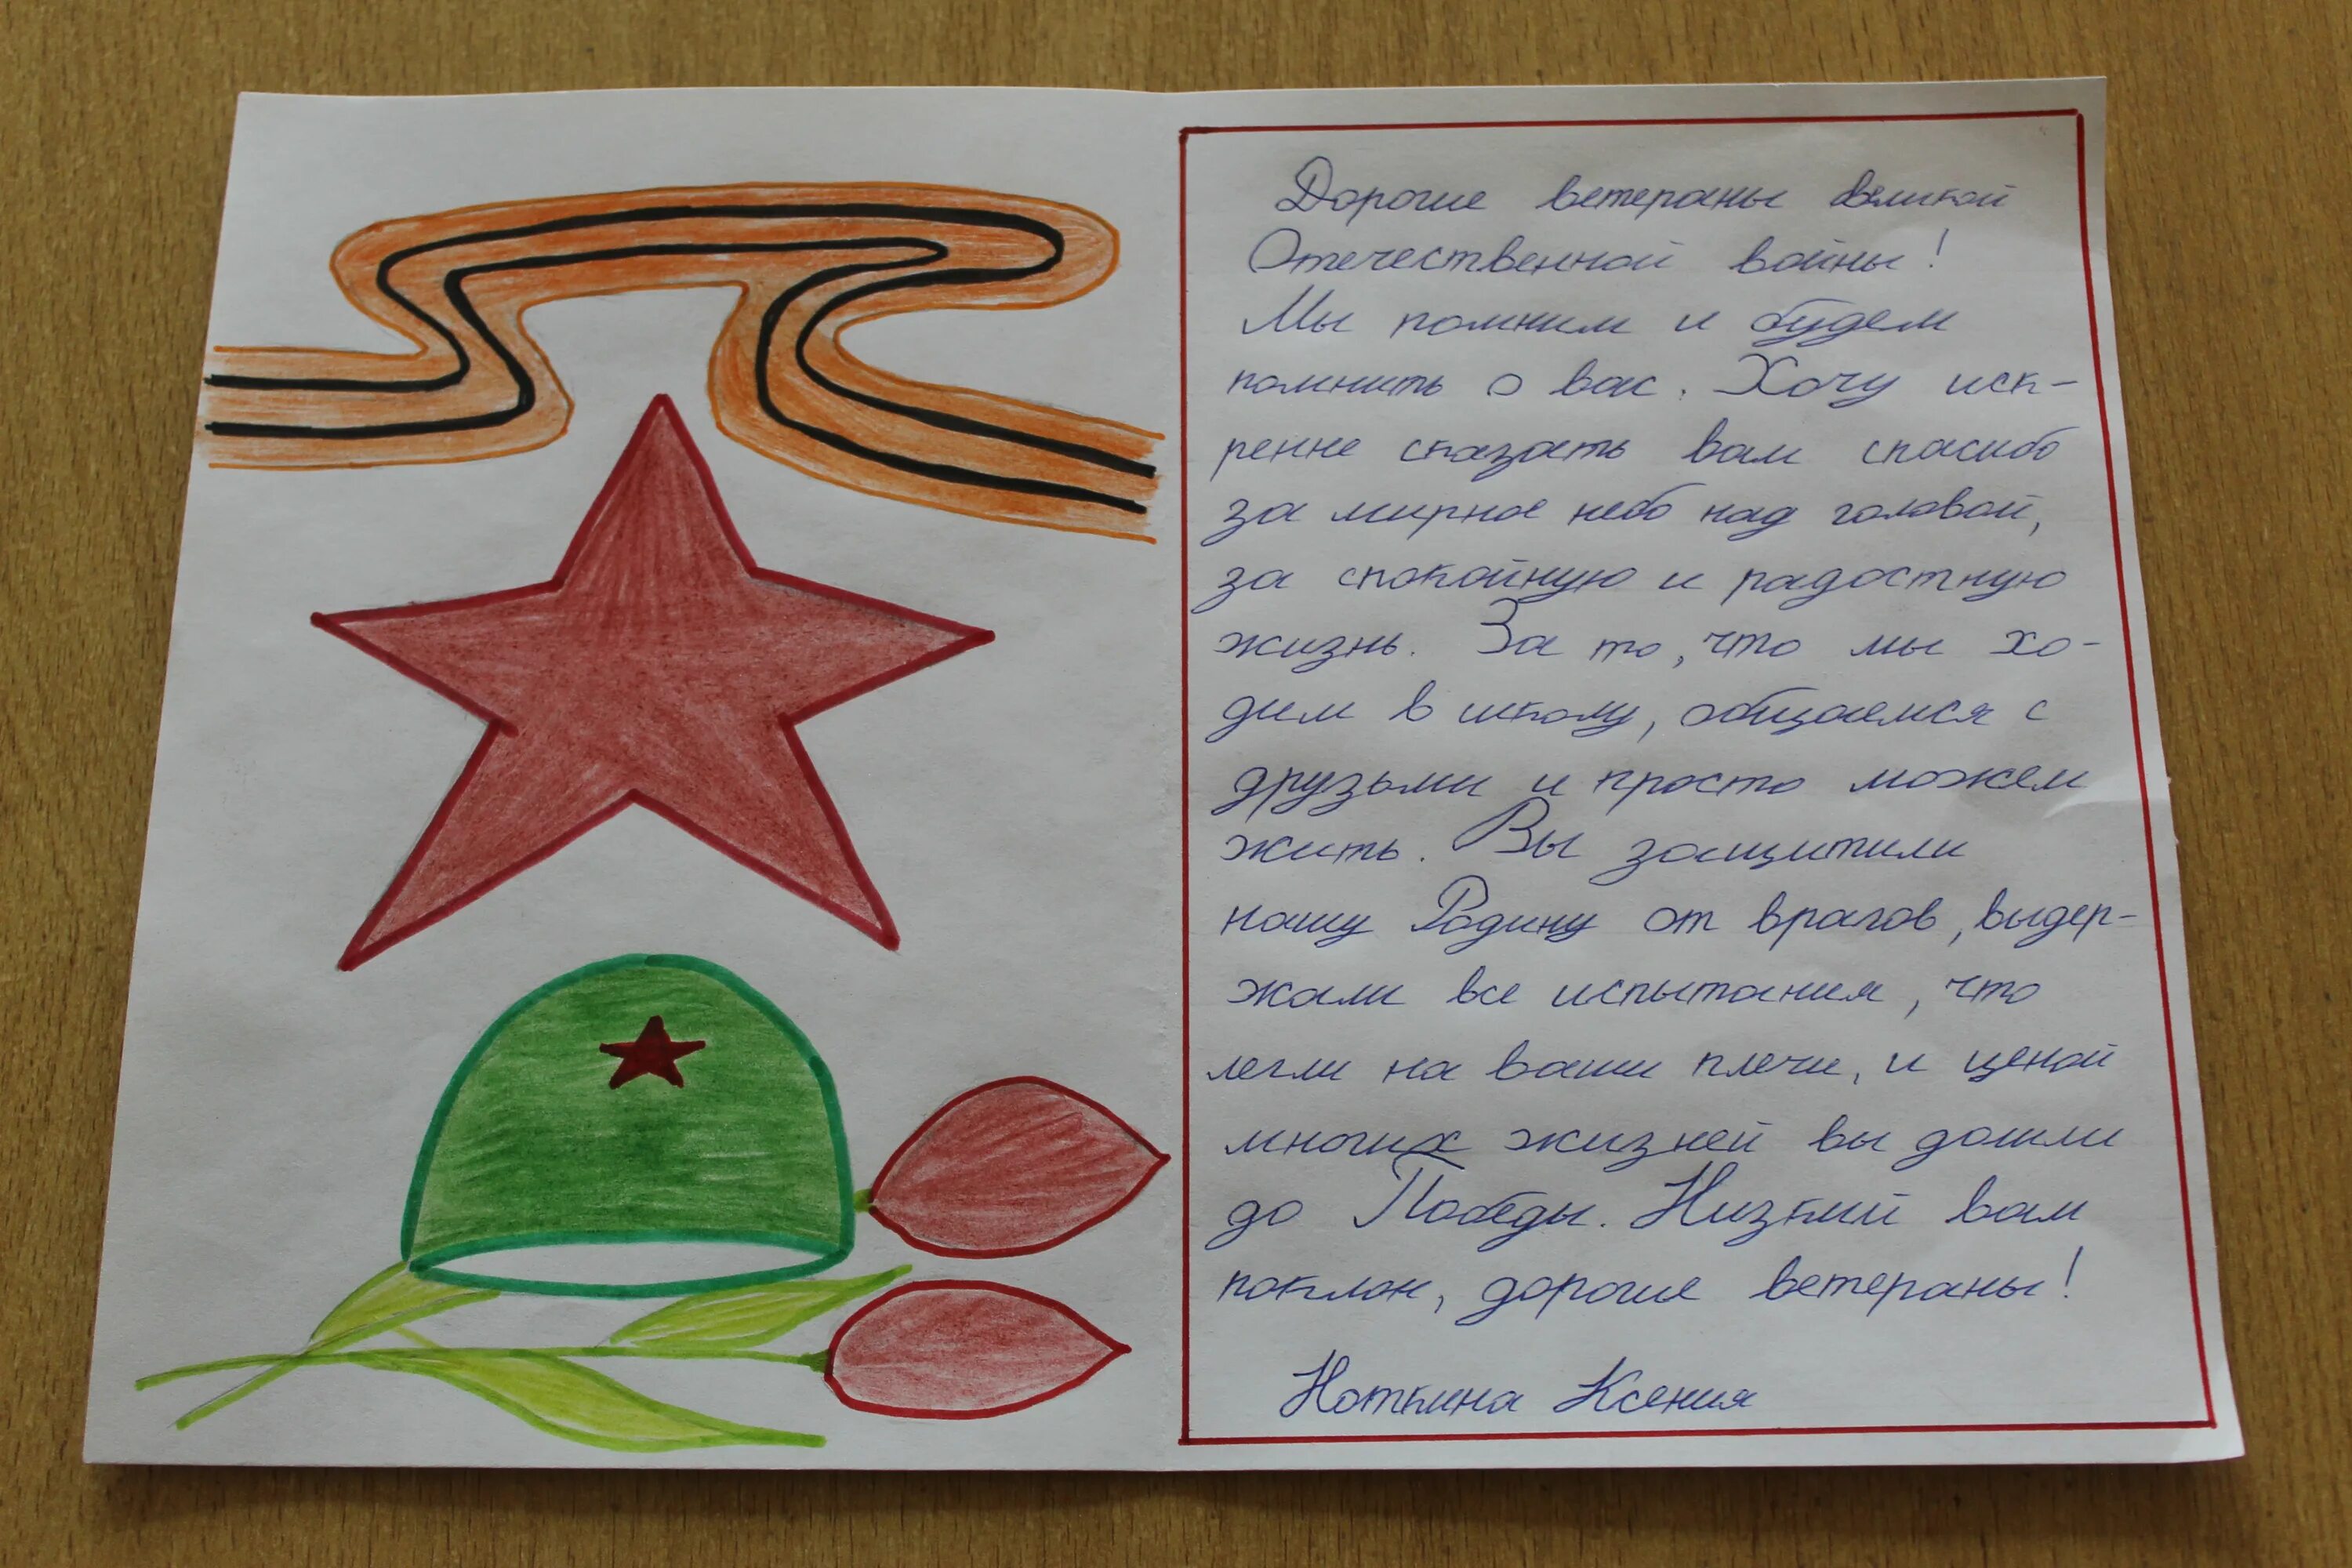 Дорогие ветераны Великой
Отечественной войны!
Мы помним и будем
помнить о вас. Хочу иск-
ренне сказать вам спасибо
за мирное небо над головой,
за спокойную и радостную
жизнь. За то, что мы хо-
дим в школу, общаемся с
друзьями и просто можем
жить. Вы защитили
нашу Родину от врагов, выдер-
жали все испытания, что
легли на ваши плечи, и ценой
многих жизней вы дошли
до Победы. Низкий вам
поклон, дорогие ветераны!
Ноткина Ксения